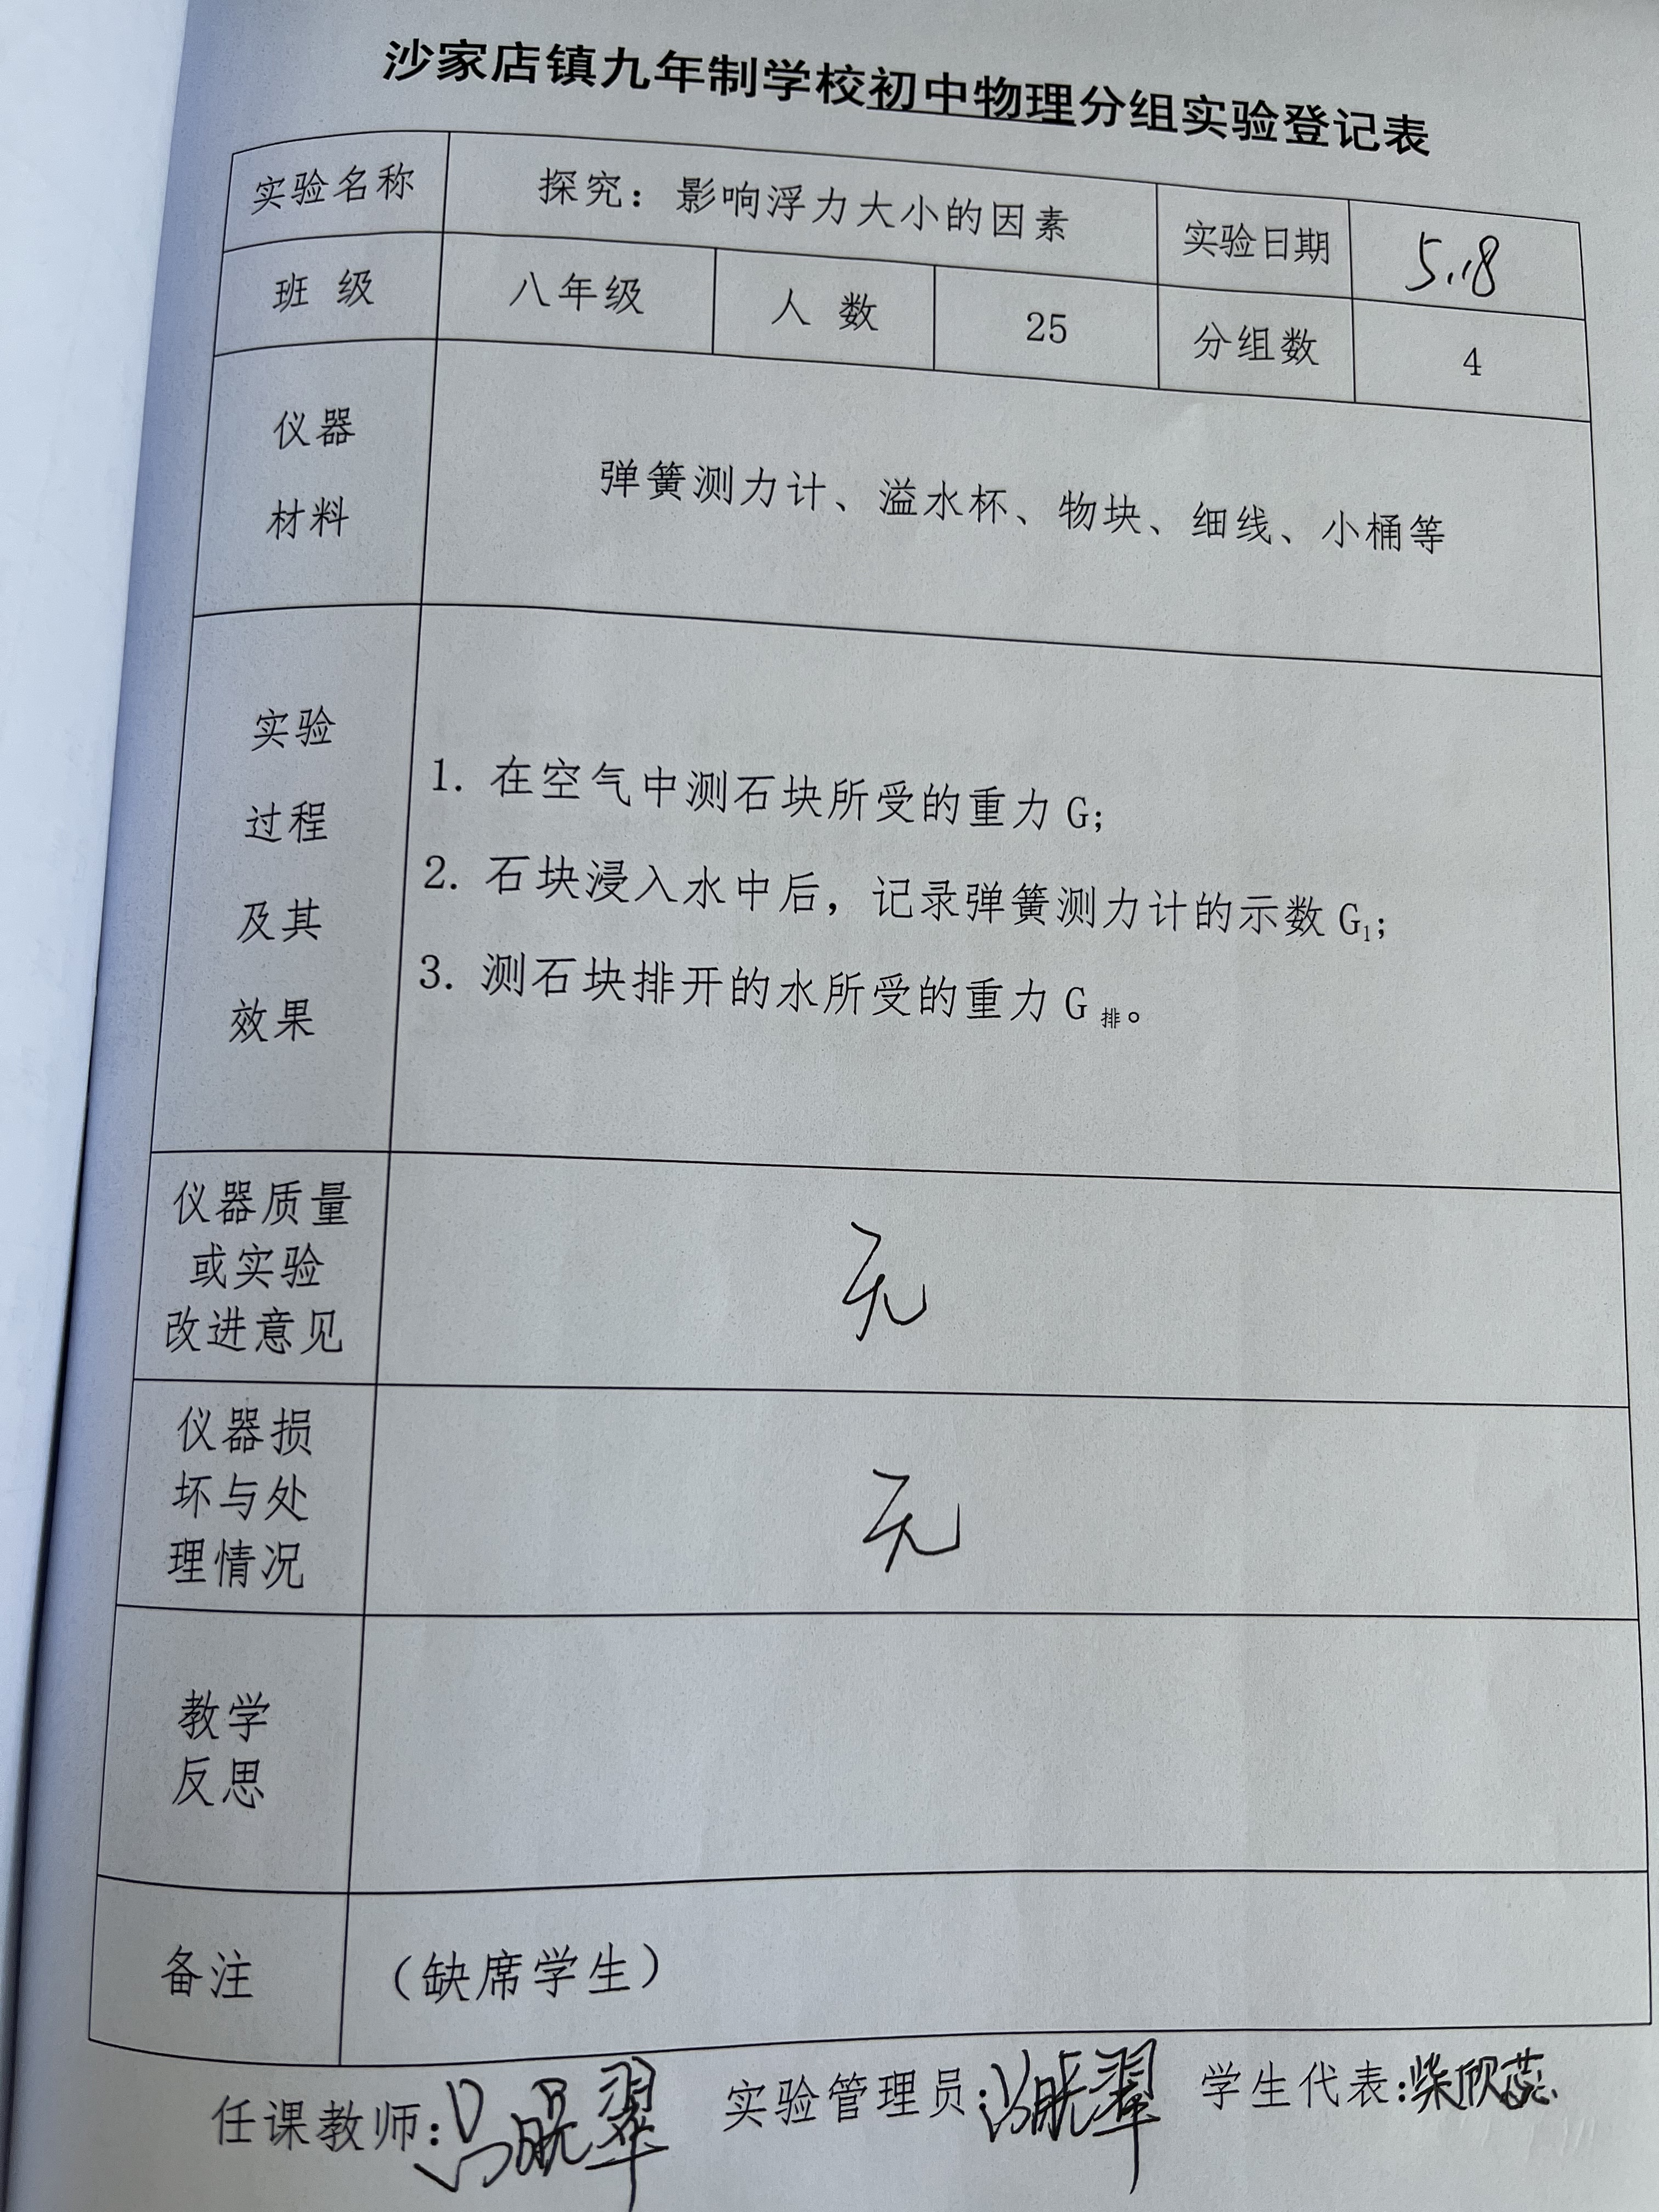 沙家店镇九年制学校初中物理分组实验登记表
实验名称 探究：影响浮力大小的因素 实验日期 5.18
班 级 八年级 人 数 25 分组数 4
仪器
材料
弹簧测力计、溢水杯、物块、细线、小桶等
实验
过程
及其
效果
1. 在空气中测石块所受的重力 G；
2. 石块浸入水中后，记录弹簧测力计的示数 G₁；
3. 测石块排开的水所受的重力 G 排。
仪器质量
或实验
改进意见
无
仪器损
坏与处
理情况
无
教学
反思
备注 （缺席学生）
任课教师： 实验管理员： 学生代表：柴欣蕊